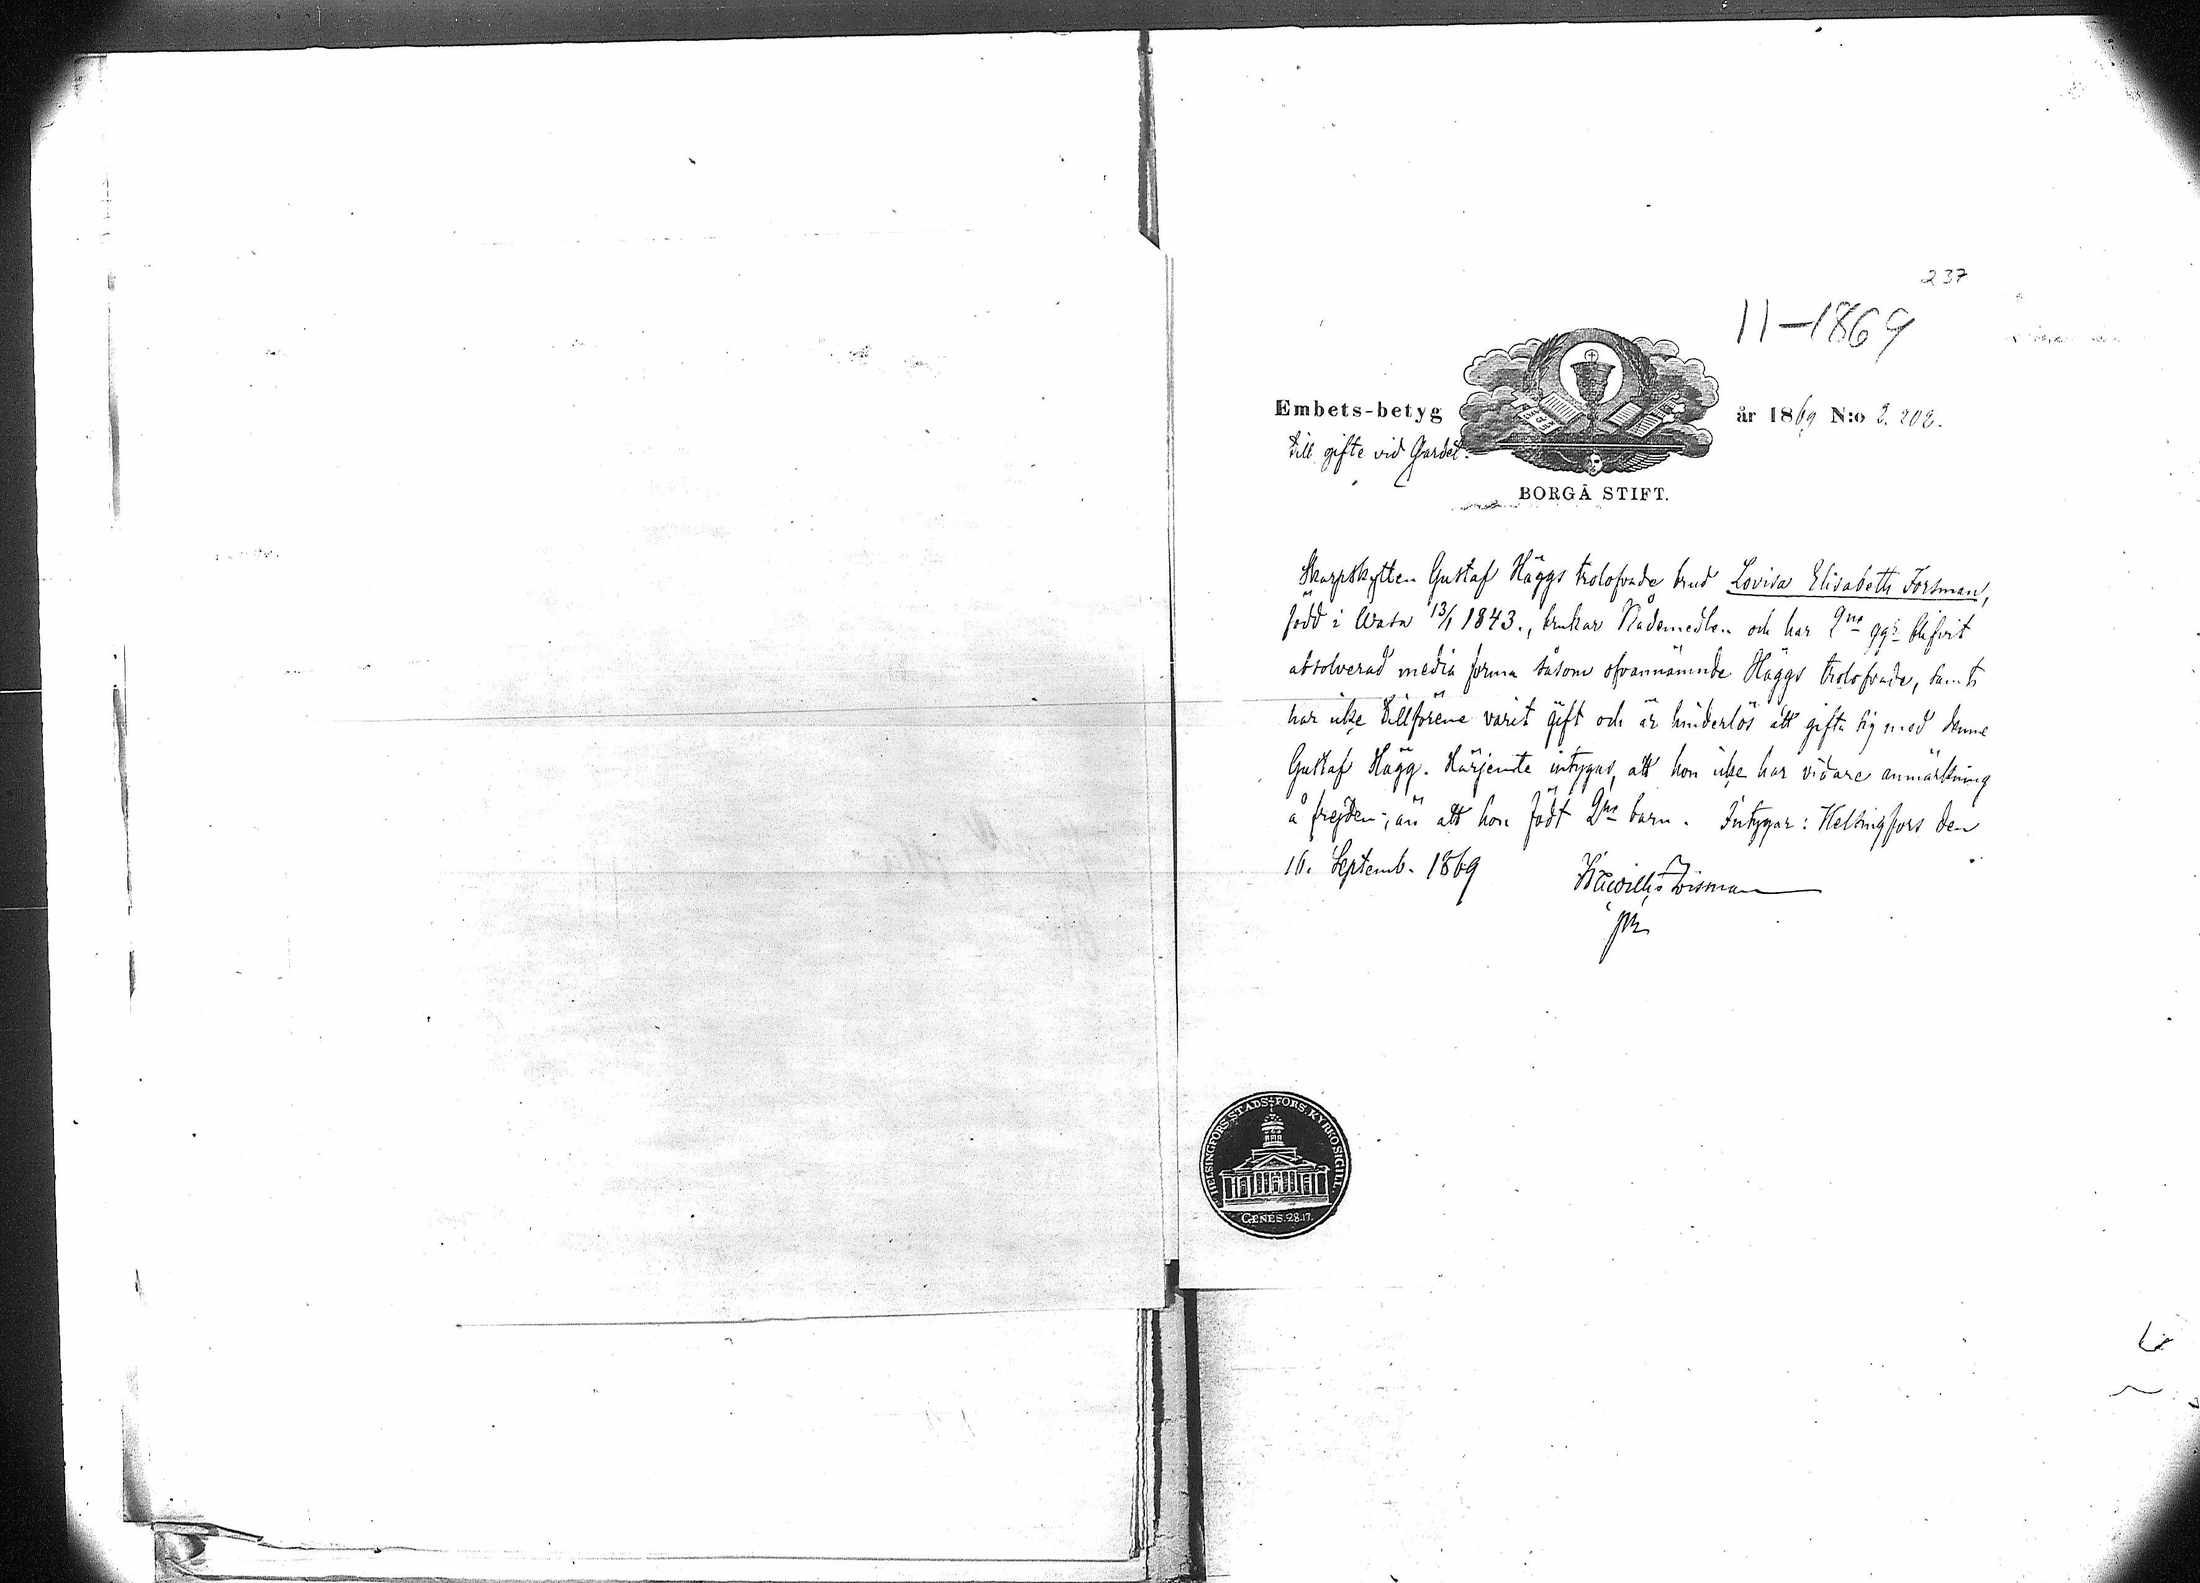 237
11–1869
Embets-betyg år 1869 N:o 2.202.
till gifte vid Gardet.
BORGÅ STIFT.
Skarpskytten Gustaf Häggs trolofvade brud Lovisa Elisabeth Forsman,
född i Wasa 13/1 1843., brukar Nådemedlen och har 2ne ggr blifvit
absolverad media forma såsom ofvannämnde Häggs trolofvade, samt
har icke tillförene varit gift och är hinderlös att gifta sig med denne
Gustaf Hägg. Härjemte intygas, att hon icke har vidare anmärkning
å frejden, än att hon födt 2ne barn. Intygar: Helsingfors den
16. Septemb. 1869
HELSINGFORS STADS FÖRS. KYRKO SIGILL.
GENES. 28.17.